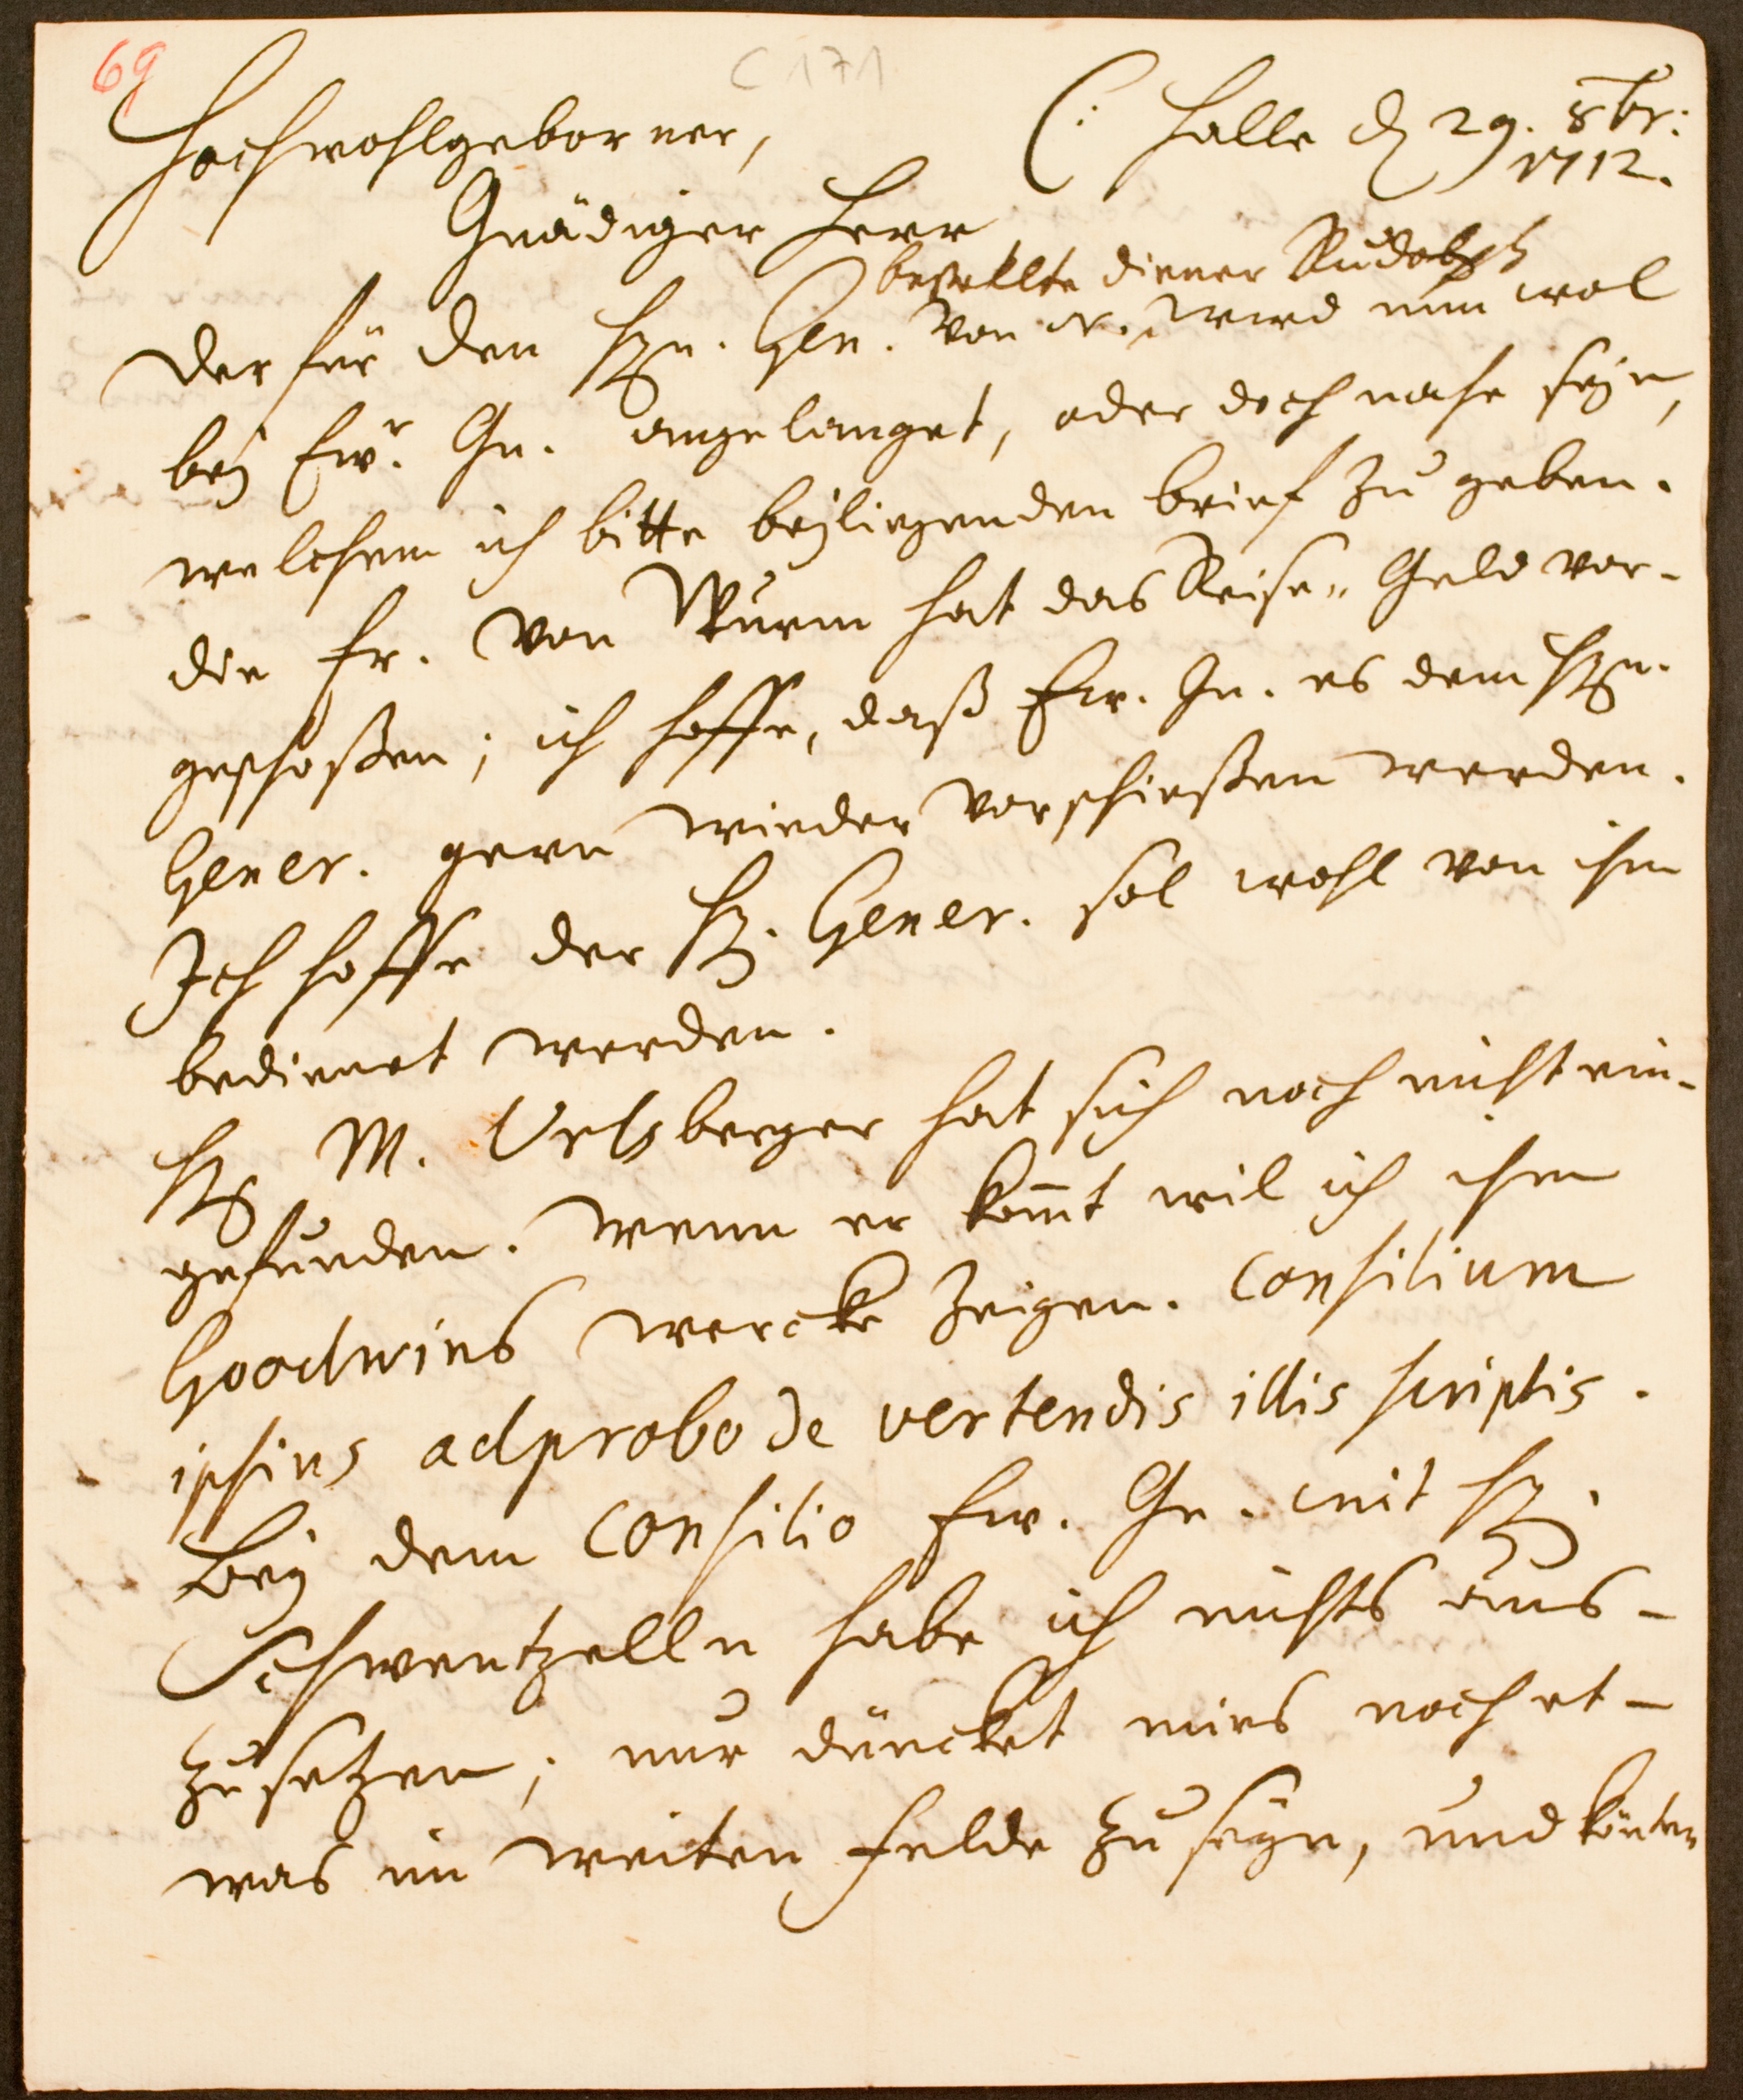 69
C 171
Hochwohlgeborner,
Halle d 29. 8br:
1712.
Gnädiger Herr
bestellte diener Rudolph
Der für den Hrn. Gen. von N. wird nun wol
bey Ewr. Gn. angelanget, oder doch nahe seyn,
welchem ich bitte beyliegenden brief zu geben.
die Fr. von Wurm hat das Reise-Geld vor-
geschoßen; ich hoffe, daß Ew. Gn. es dem Hrn.
Gener. gern wieder vorschießen werden.
Ich hoffe der Hr. Gener. sol wohl von ihm
bedienet werden.
Hr. M. Urlsberger hat sich noch nicht ein-
gefunden. Wenn er kom̄t wil ich ihm
Goodwins wercke zeigen. Consilium
ipsius adprobo de vertendis illis scriptis.
Bey dem Consilio Ew. Gn. mit Hr.
Schwentzelln habe ich nichts aus-
zusetzen; nur düncket mirs noch et-
was im weiten felde zu seyn, und könten